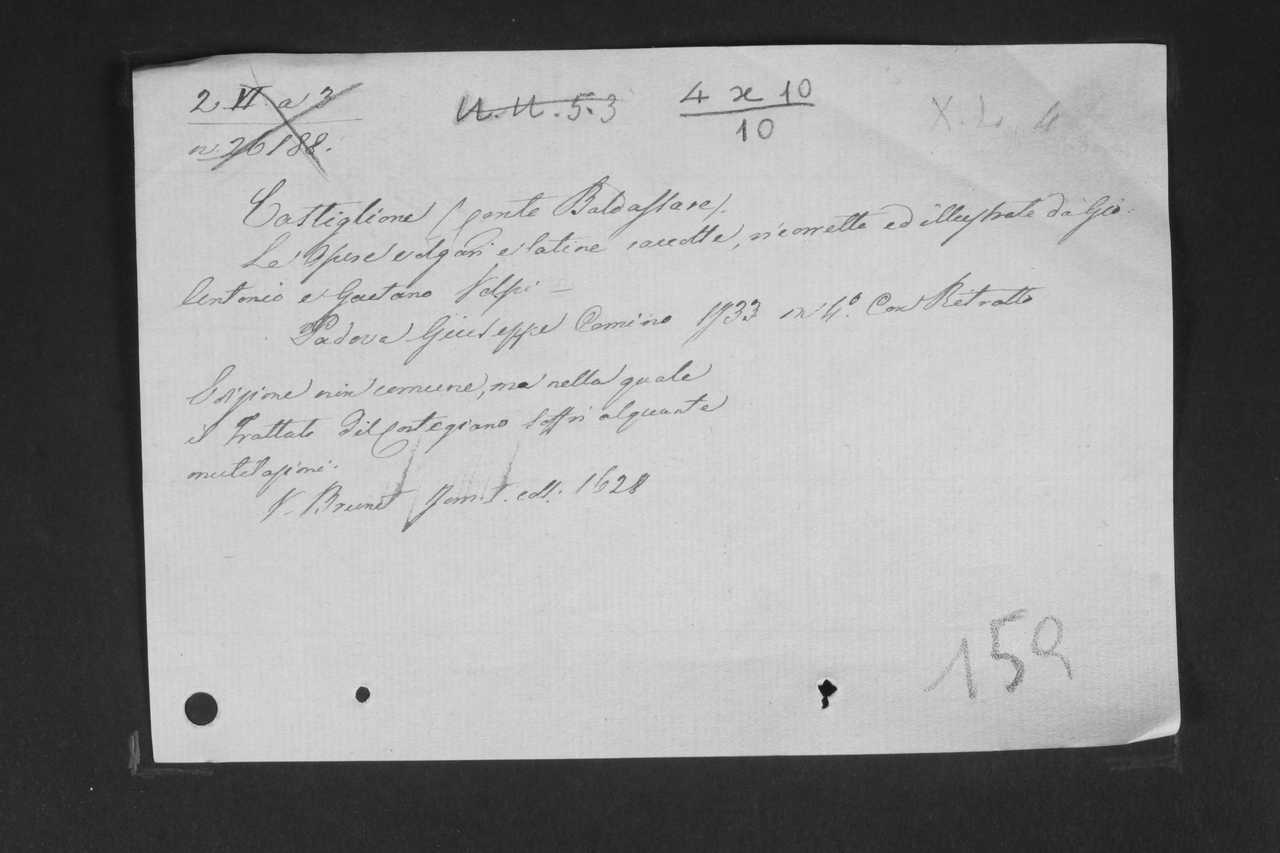 2 VI a 3
n. 26188.
N. N. 5. 3
4 x 10
10
X. L. 4
Castiglione (Conte Baldassare).
Le Opere volgari e latine raccolte, ricorrette ed illustrate da Gio:
Antonio e Gaetano Volpi —
Padova Giuseppe Comino 1733 in 4°. Con Ritratto
Edizione non comune, ma nella quale
il Trattato del Cortegiano soffrì alquante
mutilazioni.
V. Brunet Tom. I. coll. 1628
159